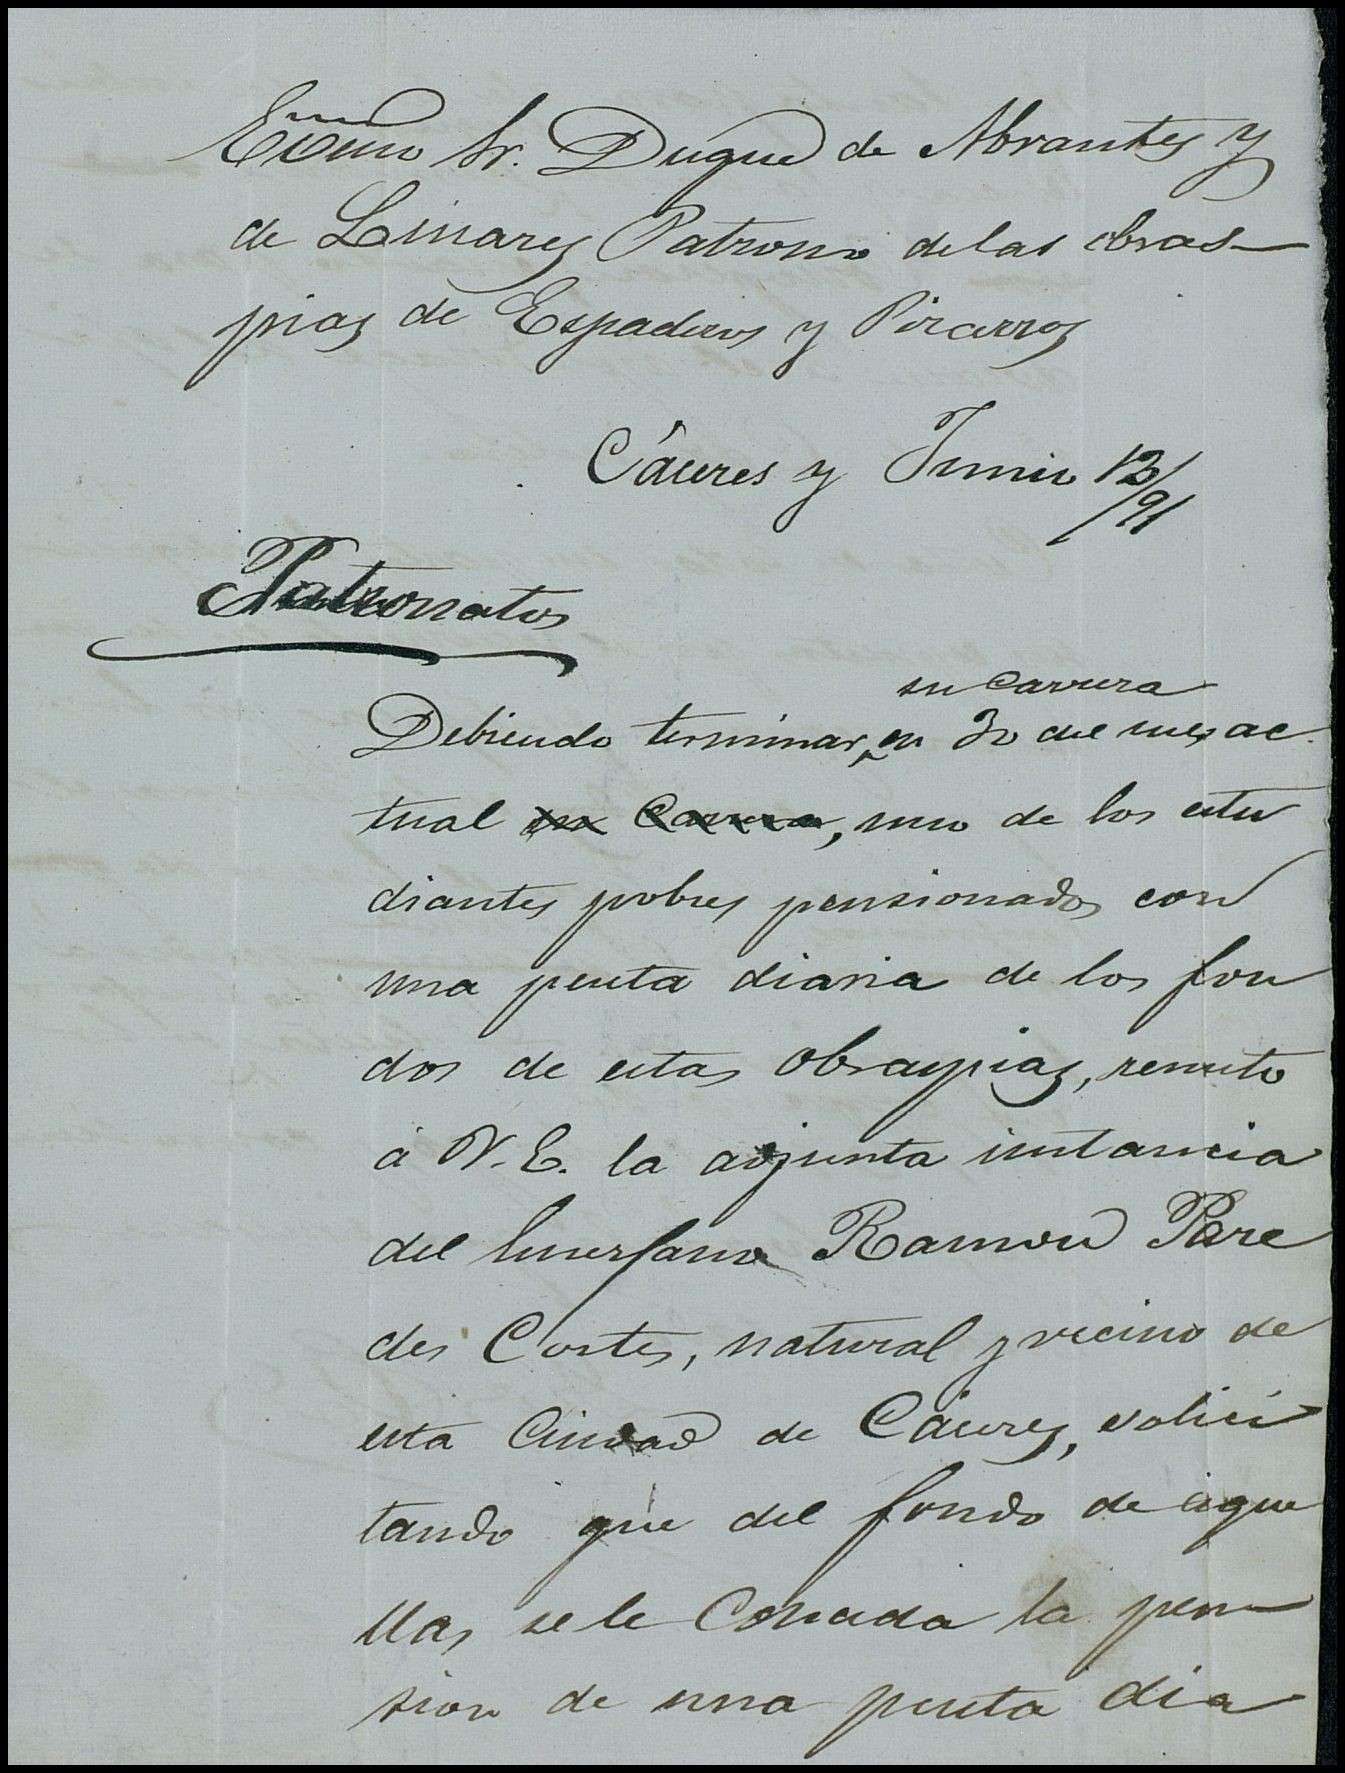 Excmo Sr. Duque de Abrantes y
de Linares Patrono de las obras-
pias de Espaderos y Pizarros
Cáceres y Junio 13/91
Patronatos
su carrera
Debiendo terminar, en 30 del mes ac
tual su Carrera, uno de los estu
diantes pobres pensionados con
una peseta diaria de los fon
dos de estas obras pias, remito
á V. E. la adjunta instancia
del huerfano Ramon Pare
des Cortes, natural y vecino de
esta Ciudad de Cáceres, solici
tando que del fondo de aque
llas se le Conceda la pen-
sion de una peseta dia